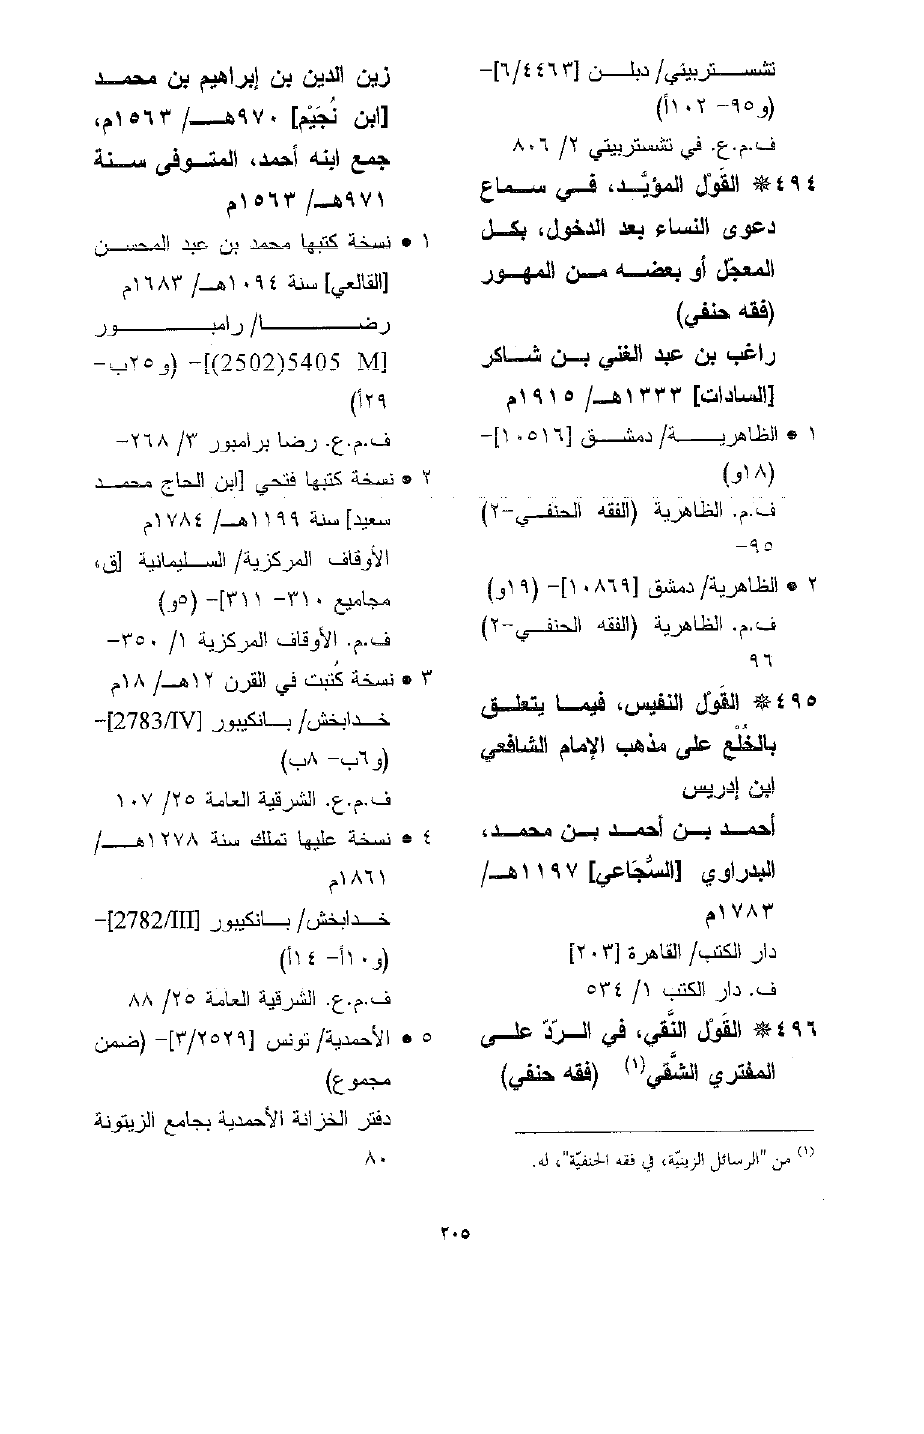 تشستربيتي/ دبلن [٦/٤٤٦٣]-
(و٩٥- ١٠٢أ)
ف.م.ع. في تشستربيتي ٢/ ٨٠٦
٤٩٤ * القَوْل المؤيَّد، في سماع
دعوى النساء بعد الدخول، بكل
المعجّل أو بعضه من المهور
(فقه حنفي)
راغب بن عبد الغني بن شاكر
[السادات] ١٣٣٣هـ/ ١٩١٥م
١ • الظاهرية/ دمشق [١٠٥١٦]-
(١٨و)
ف.م. الظاهرية (الفقه الحنفي-٢)
٩٥-
٢ • الظاهرية/ دمشق [١٠٨٦٩]- (١٩و)
ف.م. الظاهرية (الفقه الحنفي-٢)
٩٦
٤٩٥ * القَوْل النفيس، فيما يتعلق
بالخُلْع على مذهب الإمام الشافعي
ابن إدريس
أحمد بن أحمد بن محمد،
البدراوي [السُّجَاعي] ١١٩٧هـ/
١٧٨٣م
دار الكتب/ القاهرة [٢٠٣]
ف. دار الكتب ١/ ٥٣٤
٤٩٦ * القَوْل النَّقي، في الردّ على
المفتري الشَّقي(١) (فقه حنفي)
(١) من "الرسائل الزينيّة، في فقه الحنفيّة"، له.
زين الدين بن إبراهيم بن محمد
[ابن نُجَيْم] ٩٧٠هـ/ ١٥٦٣م،
جمع ابنه أحمد، المتوفى سنة
٩٧١هـ/ ١٥٦٣م
١ • نسخة كتبها محمد بن عبد المحسن
[القالعي] سنة ١٠٩٤هـ/ ١٦٨٣م
رضا/ رامبور
[M 5405(2502)]- (و٢٥ب-
٢٩أ)
ف.م.ع. رضا برامبور ٣/ ٢٦٨-
٢ • نسخة كتبها فتحي [ابن الحاج محمد
سعيد] سنة ١١٩٩هـ/ ١٧٨٤م
الأوقاف المركزية/ السليمانية [ق،
مجاميع ٣١٠- ٣١١]- (٥و)
ف.م. الأوقاف المركزية ١/ ٣٥٠-
٣ • نسخة كُتبت في القرن ١٢هـ/ ١٨م
خدابخش/ بانكيبور [2783/IV]-
(و٦ب- ٨ب)
ف.م.ع. الشرقية العامة ٢٥/ ١٠٧
٤ • نسخة عليها تملك سنة ١٢٧٨هـ/
١٨٦١م
خدابخش/ بانكيبور [2782/III]-
(و١٠أ- ١٤أ)
ف.م.ع. الشرقية العامة ٢٥/ ٨٨
٥ • الأحمدية/ تونس [٣/٢٥٢٩]- (ضمن
مجموع)
دفتر الخزانة الأحمدية بجامع الزيتونة
٨٠
٢٠٥